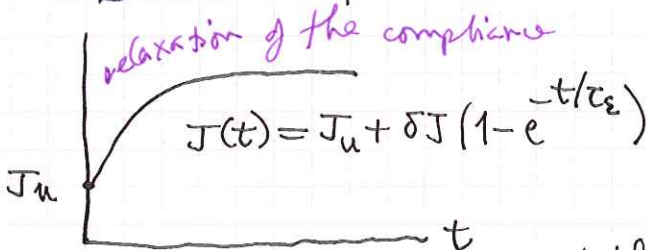 relaxation of the compliance
J(t) = Ju + δJ (1 - e^-t/τε)
Ju
t